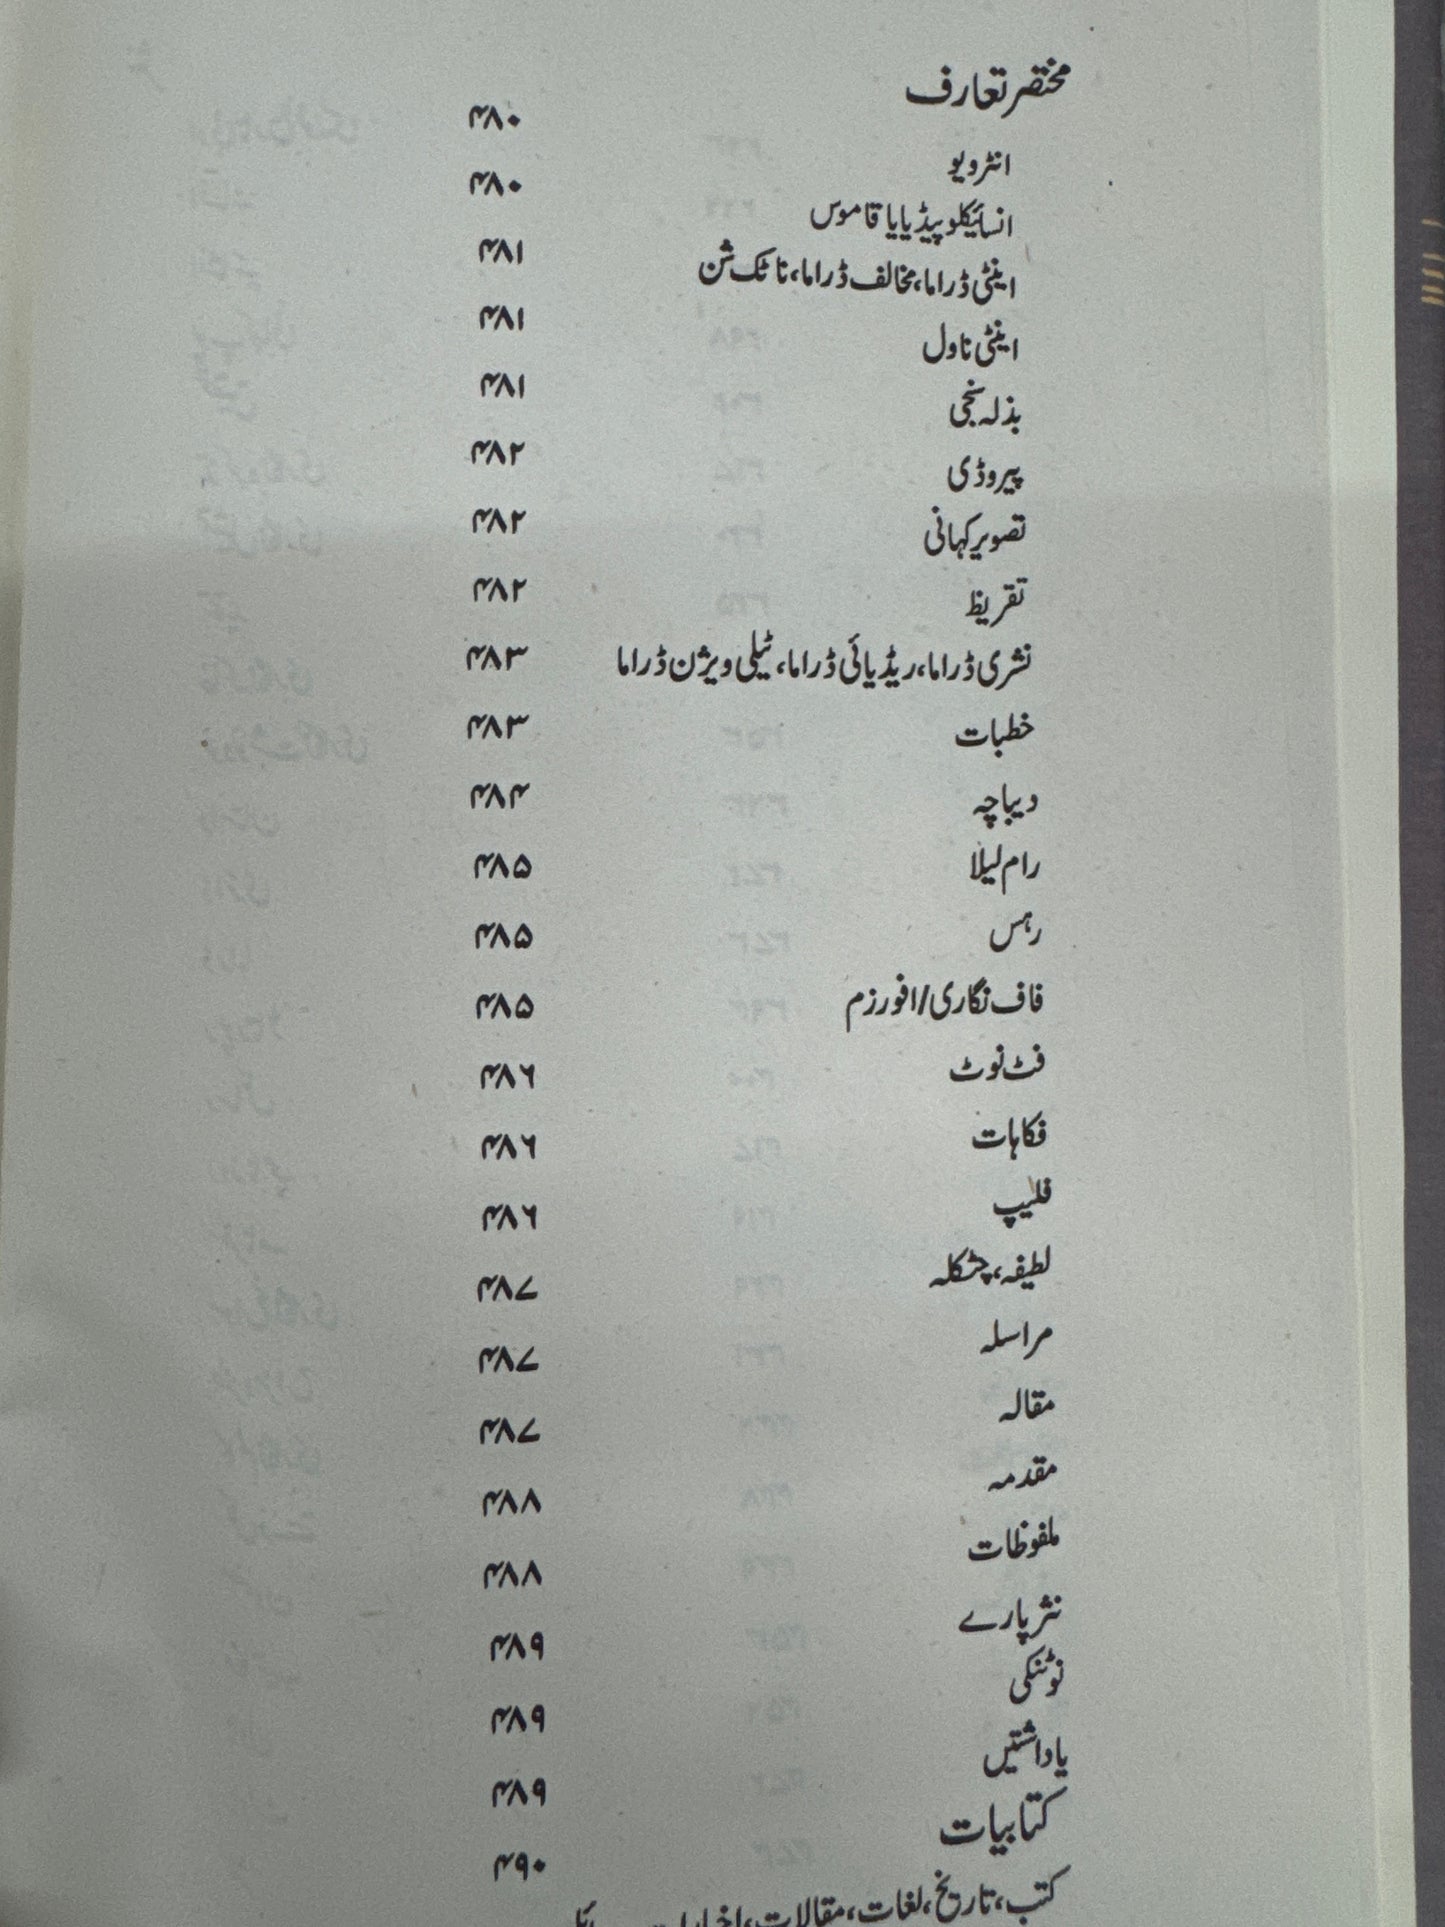 مختصر تعارف
انٹرویو ۴۸۰
انسائیکلوپیڈیا یا قاموس ۴۸۰
اینٹی ڈراما، مخالف ڈراما، ناٹک شن ۴۸۱
اینٹی ناول ۴۸۱
بذلہ سنجی ۴۸۱
پیروڈی ۴۸۲
تصویر کہانی ۴۸۲
تقریظ ۴۸۲
نشری ڈراما، ریڈیائی ڈراما، ٹیلی ویژن ڈراما ۴۸۳
خطبات ۴۸۳
دیباچہ ۴۸۴
رام لیلا ۴۸۵
رہس ۴۸۵
فاف نگاری/افورزم ۴۸۵
فٹ نوٹ ۴۸۶
فکاہات ۴۸۶
فلیپ ۴۸۶
لطیفہ، چٹکلہ ۴۸۷
مراسلہ ۴۸۷
مقالہ ۴۸۷
مقدمہ ۴۸۸
ملفوظات ۴۸۸
نثر پارے ۴۸۹
نوٹنکی ۴۸۹
یاداشتیں ۴۸۹
کتابیات
کتب، تاریخ، لغات، مقالات، ۴۹۰